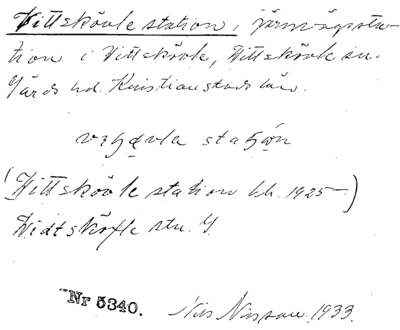 Vittskövle station, järnvägssta-
tion i Vittskövle, Vittskövle sn.
Gärds hd. Kristianstads län.
station
(Vittskövle station bb. 1925—)
Widtsköfle stn. G.
Nr 5340. Nils Nilsson. 1933.